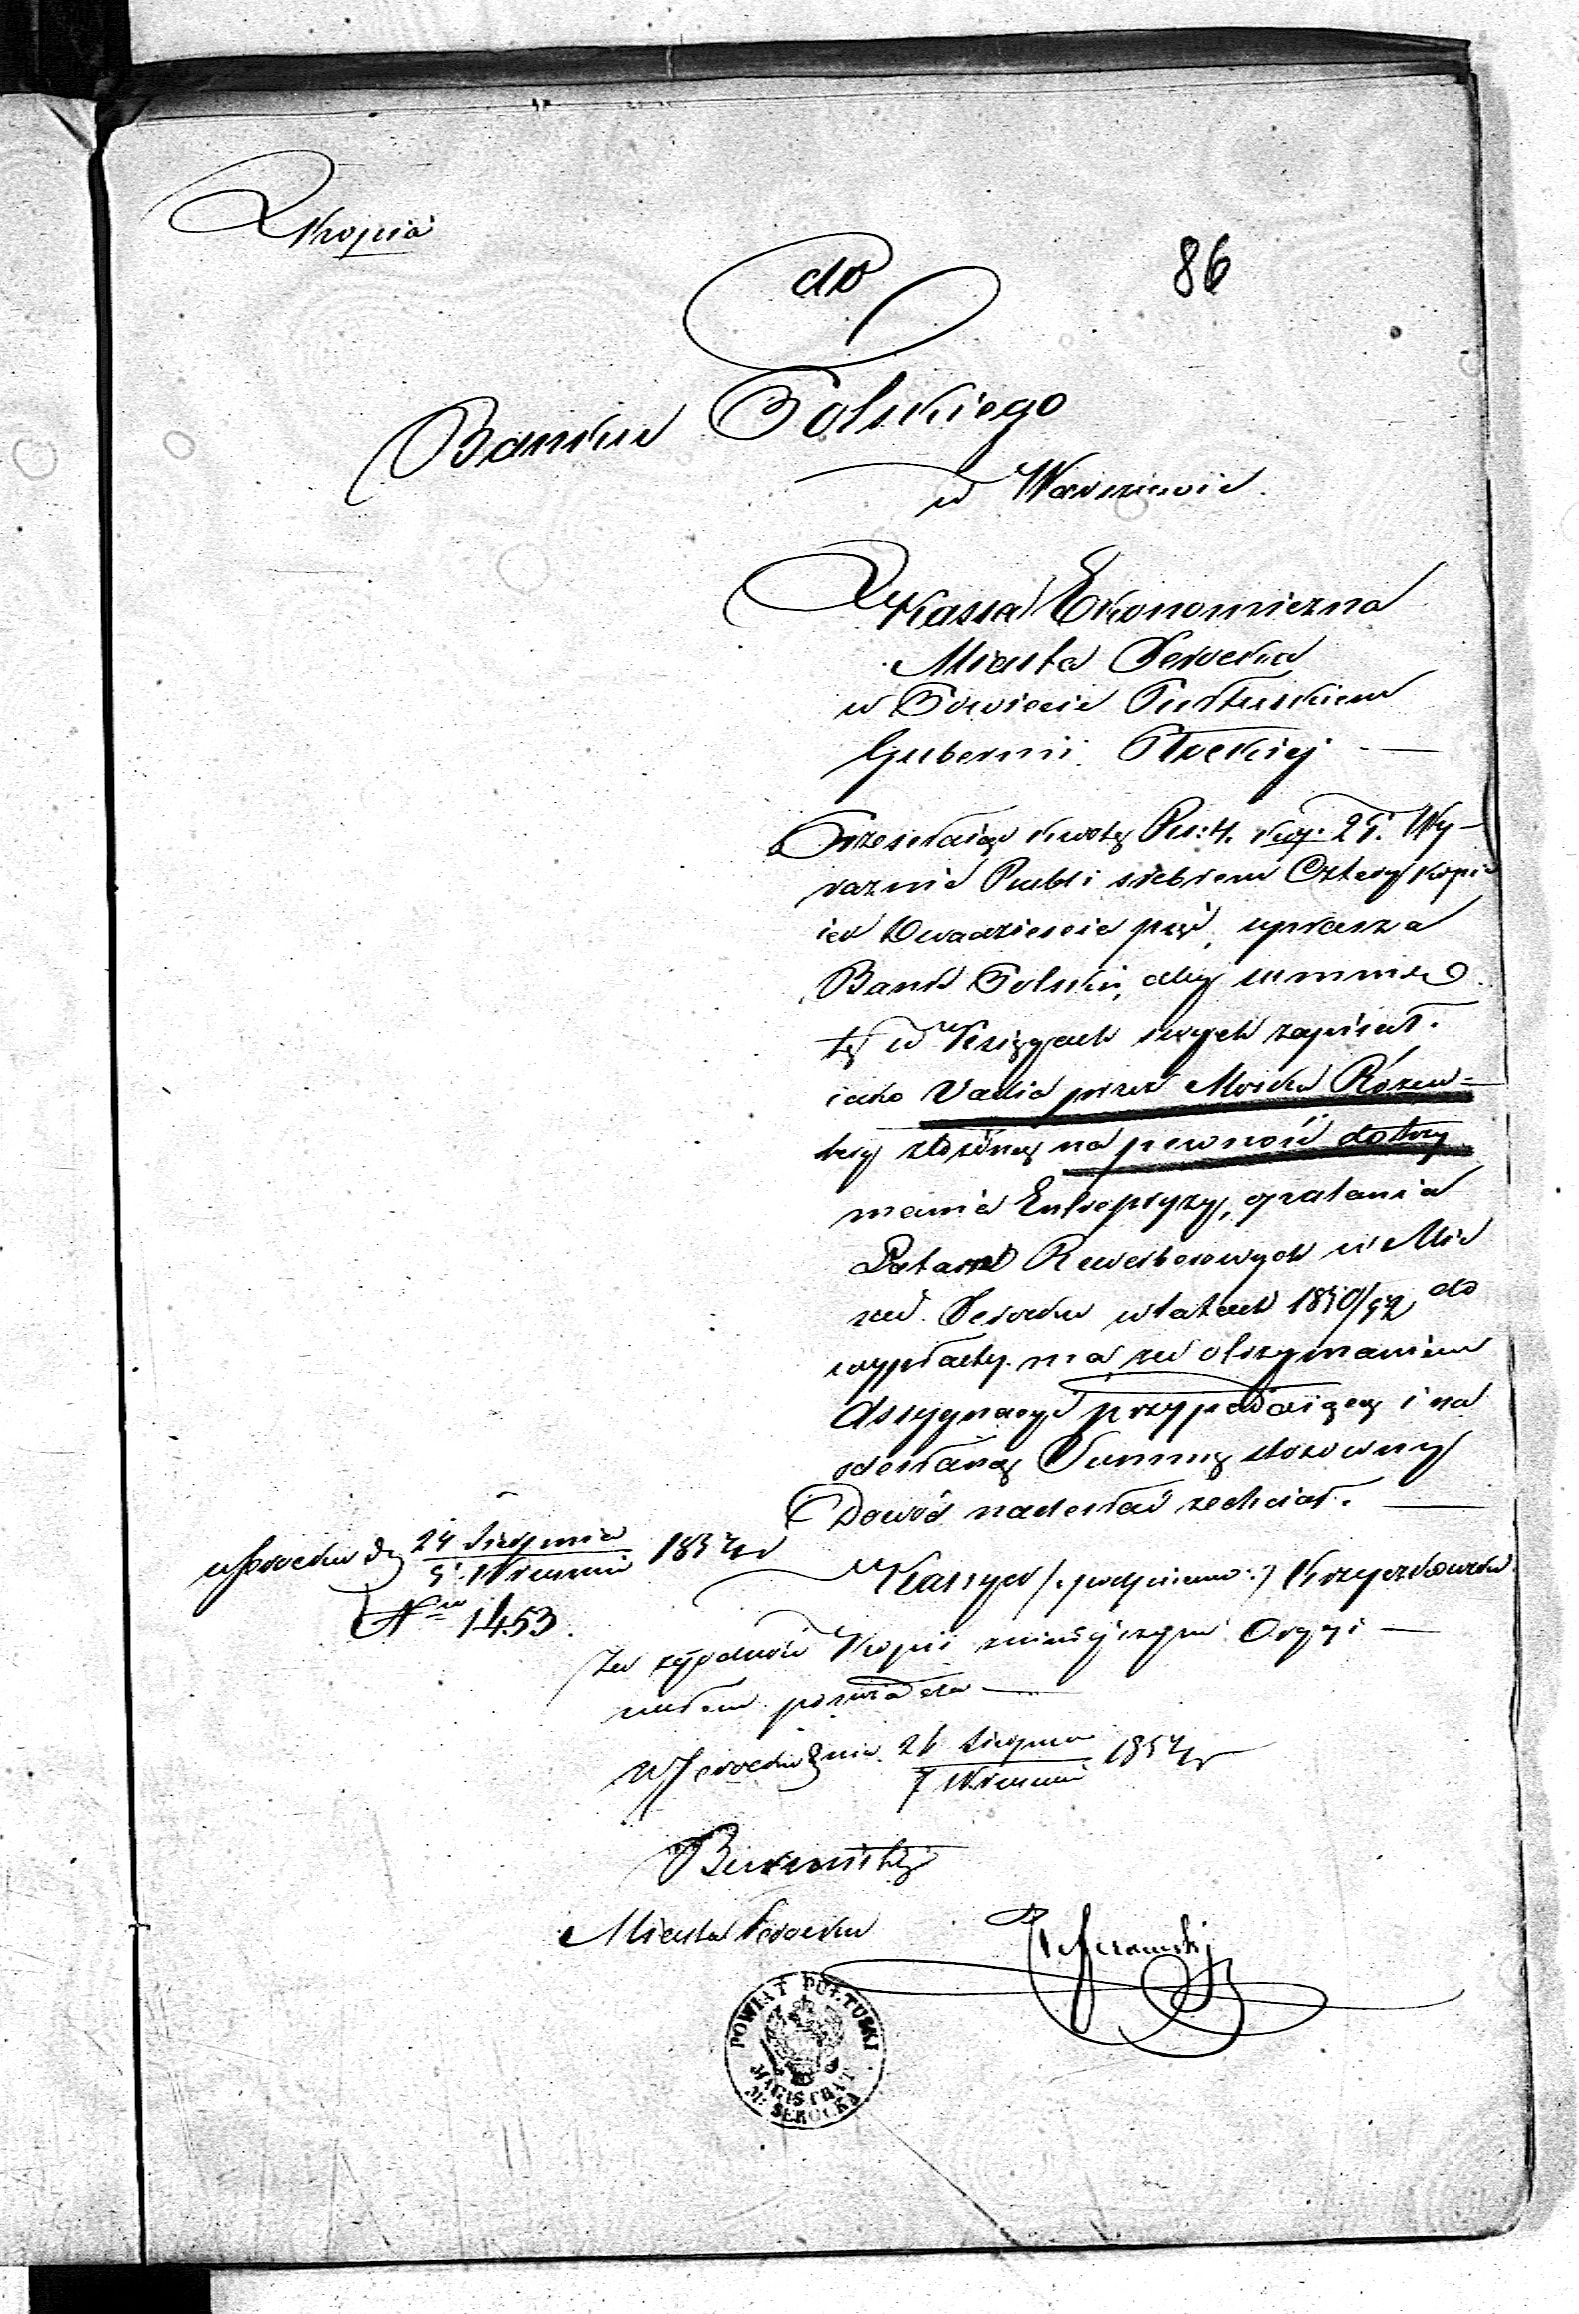 Kopia
86
do
Banku Polskiego
w Warszawie.
Kassa Ekonomiczna
Miasta Serocka
w Powiecie Pułtuskiem
Gubernii Płockiej
Przesełając kwotę Rs: 4. kop: 25. Wy-
raznie Rubli srebrem Cztery kopie
iek Dwadzieścia pięć, uprasza
Bank Polski, aby summę
tę w Księgach swych zapisał.
iako Vadia przez Moska Rózen-
berg złożoną na pewność dotrzy
mania Entrepryzy, opalania
Latarń Rewerberowych w Mie
scie Serocku w latach 1850/52 do
wypłaty ma za otrzymaniem
Assygnacyi przypadaiącej i na
odesłaną Summę stosowny
Dowód nadesłać zechciał.
w Serocku d. 24 Sierpnia
5 Wrzesnia 1854 r
N 1453.
Kassyer /: podpisano :/
Za zgodność Kopii z niniejszym Orygi-
nałem poswiadcza
w Serocku dnia 26 Sierpnia
7 Wrzesnia 1854 r
Burmistrz
Miasta Serocka
POWIAT PUŁTUSKI
MAGISTRAT
M: SEROCKA